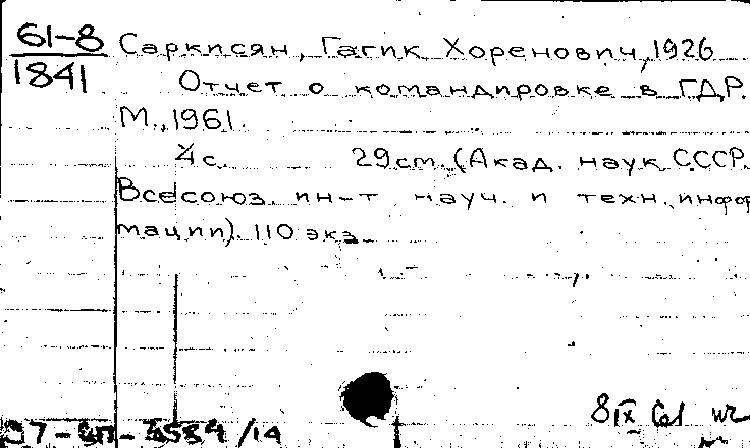 61-8
1841
Саркисян, Гагик Хоренович, 1926
Отчет о командировке в ГДР.
М., 1961.
4 с. 29 см. (Акад. наук СССР.
Всесоюз. ин-т науч. и техн. инфор
мации). 110 экз.
8 IX